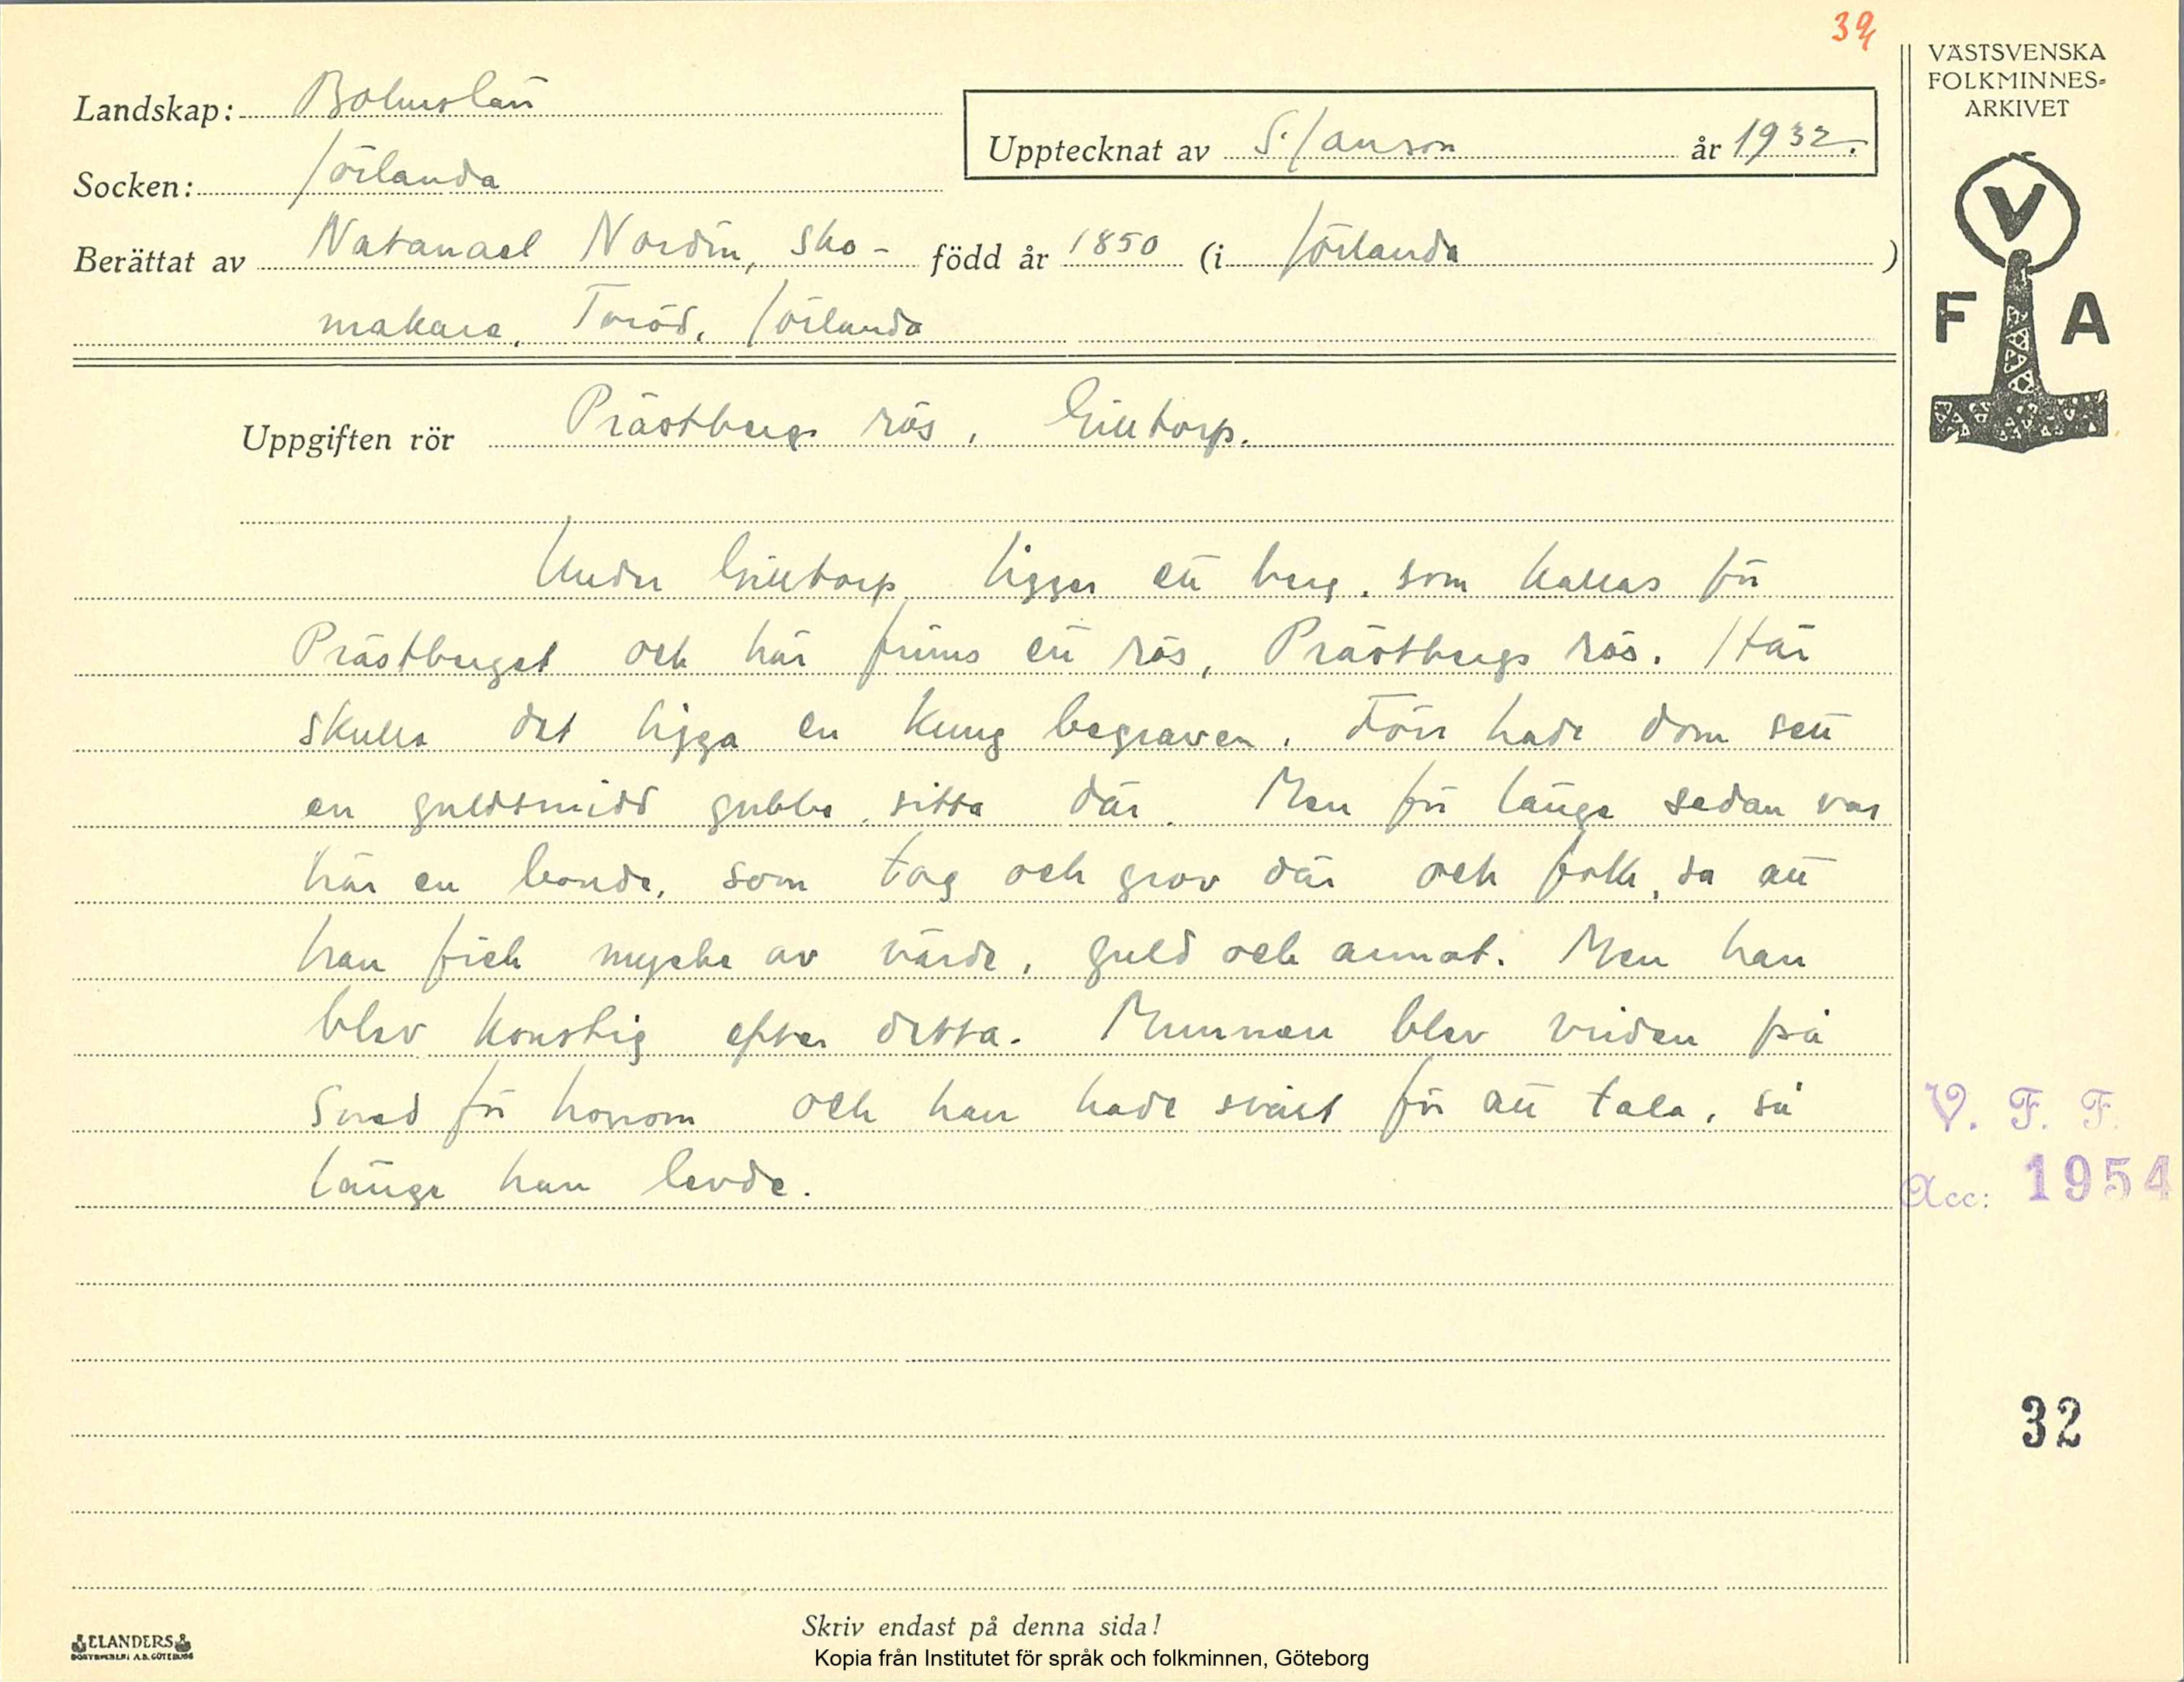 39
VÄSTSVENSKA
FOLKMINNES-
ARKIVET
Landskap: Bohuslän
Upptecknat av S. Janson år 1932.
Socken: Jörlanda
Berättat av Natanael Nordin, sko- född år 1850 (i Jörlanda)
makare, Toröd, Jörlanda
V
F A
Uppgiften rör Prästbergs rös,
Under ligger ett berg, som kallas för
Prästberget och här finns ett rös, Prästbergs rös. Här
skulle det ligga en kung begraven. Förr hade dom sett
en guldsmidd gubbe sitta där. Men för länge sedan var
här en bonde, som tog och grov där och folk sa att
han fick mycke av värde, guld och annat. Men han
blev konstig efter detta. Munnen blev vriden på
sned för honom och han hade svårt för att tala, så
länge han levde.
V. F. F.
Acc: 1954
32
Skriv endast på denna sida!
ELANDERS
BOKTRYCKERI A.B. GÖTEBORG
Kopia från Institutet för språk och folkminnen, Göteborg